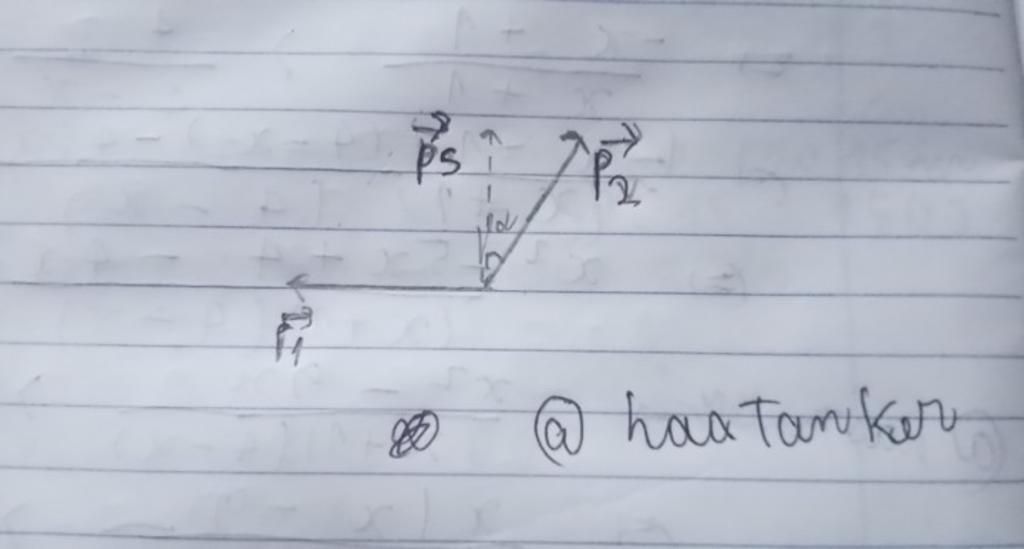 →ps
→p2
→p1
α
@ haaTanker